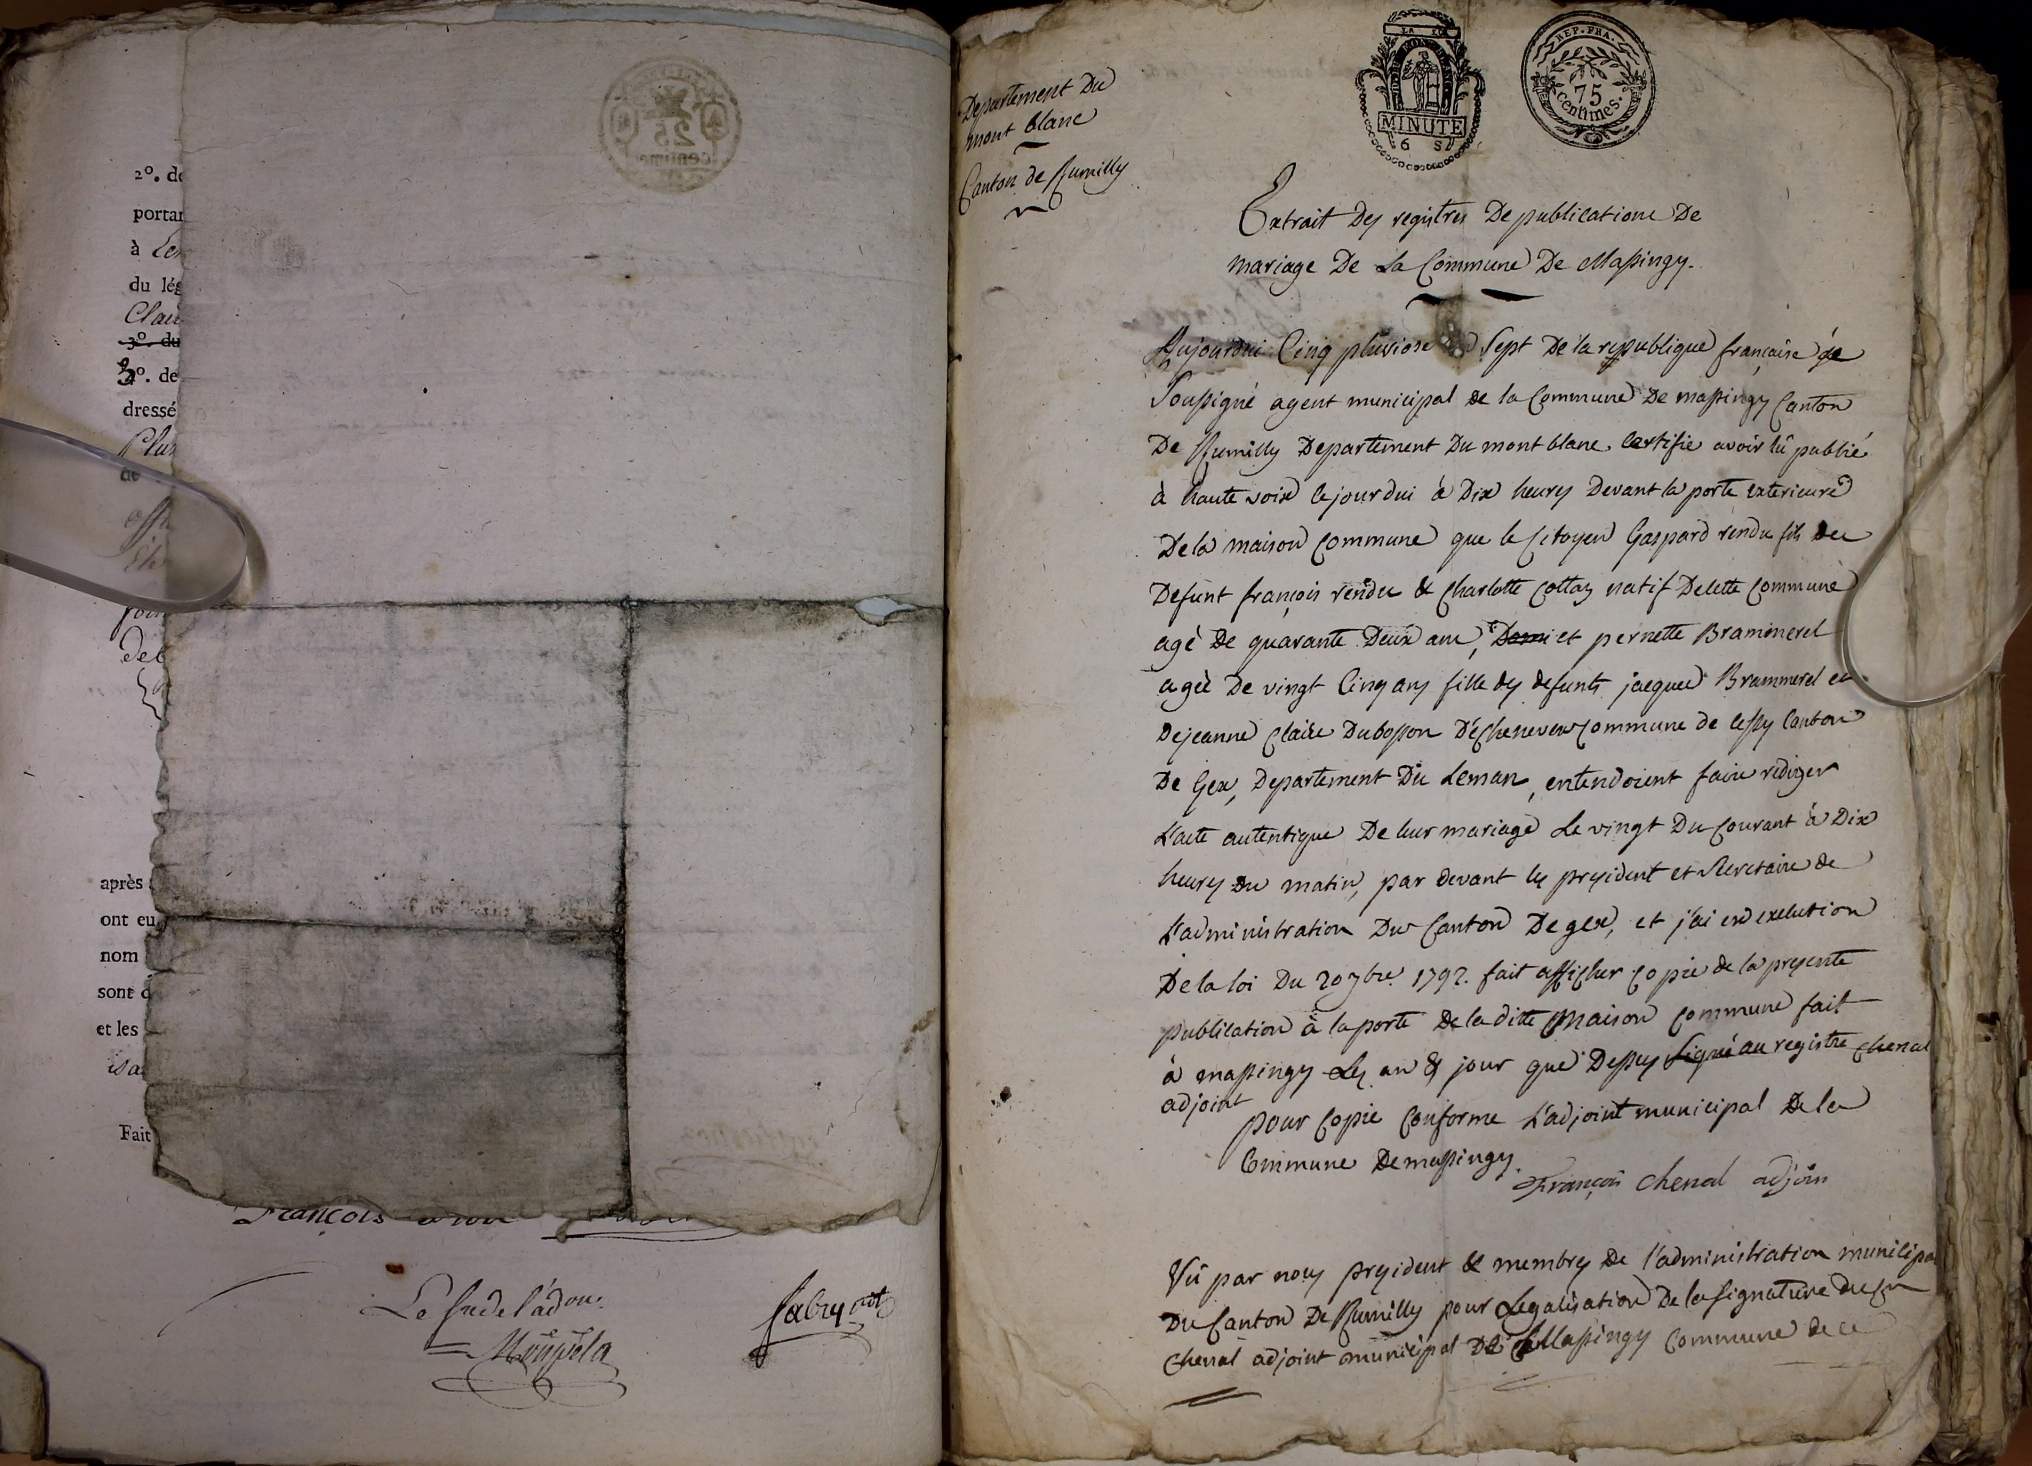 2º. de
portan
à
du lég
Clau
3º. du
3º. de
dressé
de
après
ont eu
nom
sont d
et les
Fait
François
Le
Departement Du
mont blanc
Canton de Rumilly
LA LOI
MINUTE
6 S
REP. FRA.
75
centimes.
Extrait des registres De publications De
mariage De La Commune De Massingy.
Aujourdui Cinq pluviose Sept De la republique francaise je
Soussigné agent municipal de la Commune De massingy Canton
De Rumilly Departement Du mont blanc Certifie avoir lû publié
à haute voix cejourdui à Dix heures Devant la porte exterieure
De la maison Commune que le Citoyen Gaspard rendu fils de
Defunt françois rendu & Charlotte Collaz natif De cette Commune
agé De quarante Deux ans, Domi et pernette Brammerel
agée De vingt Cinq ans fille des defunts jacques Brammerel et
De jeanne Claire Dubosson D'Echenevex Commune de Cessy Canton
De Gex, Departement Du Leman, entendoient faire rediger
L'acte autentique De leur mariage Le vingt Du Courant à Dix
heures Du matin, par devant les president et Secretaire de
L'administration Du Canton De gex, et j'ai en execution
De la loi Du 20 7bre. 1792. fait afficher Copie de la presente
publication à la porte De la ditte Maison Commune fait
à massingy Les an & jour que Dessus Signé au registre Chenal
adjoint
pour Copie Conforme L'adjoint municipal De la
Commune De massingy.
François Chenal adjoin
Vû par nous president & membres De l'administration municipa
Du Canton De Rumilly pour Legalisation De la signature du
Chenal adjoint municipal De Massingy Commune de ce